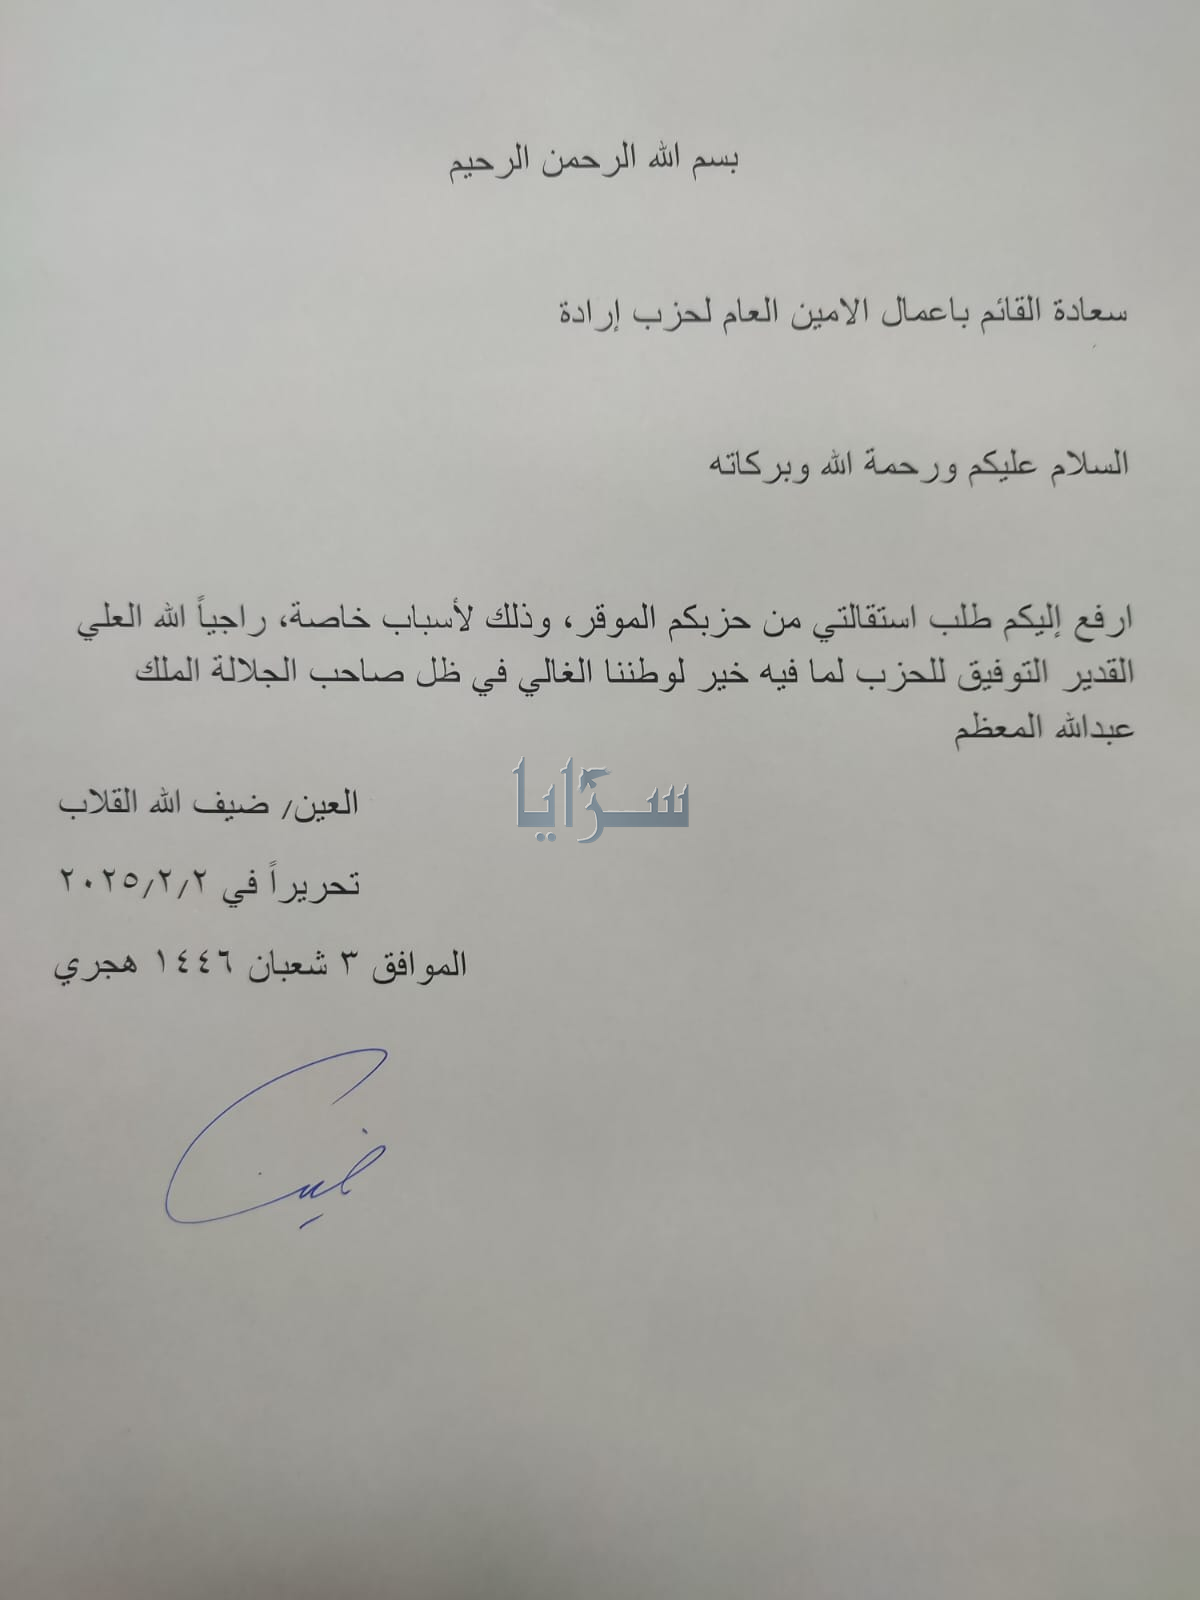 بسم الله الرحمن الرحيم
سعادة القائم باعمال الامين العام لحزب إرادة
السلام عليكم ورحمة الله وبركاته
ارفع إليكم طلب استقالتي من حزبكم الموقر، وذلك لأسباب خاصة، راجياً الله العلي
القدير التوفيق للحزب لما فيه خير لوطننا الغالي في ظل صاحب الجلالة الملك
عبدالله المعظم
سرايا
العين/ ضيف الله القلاب
تحريراً في ٢٠٢٥/٢/٢
الموافق ٣ شعبان ١٤٤٦ هجري